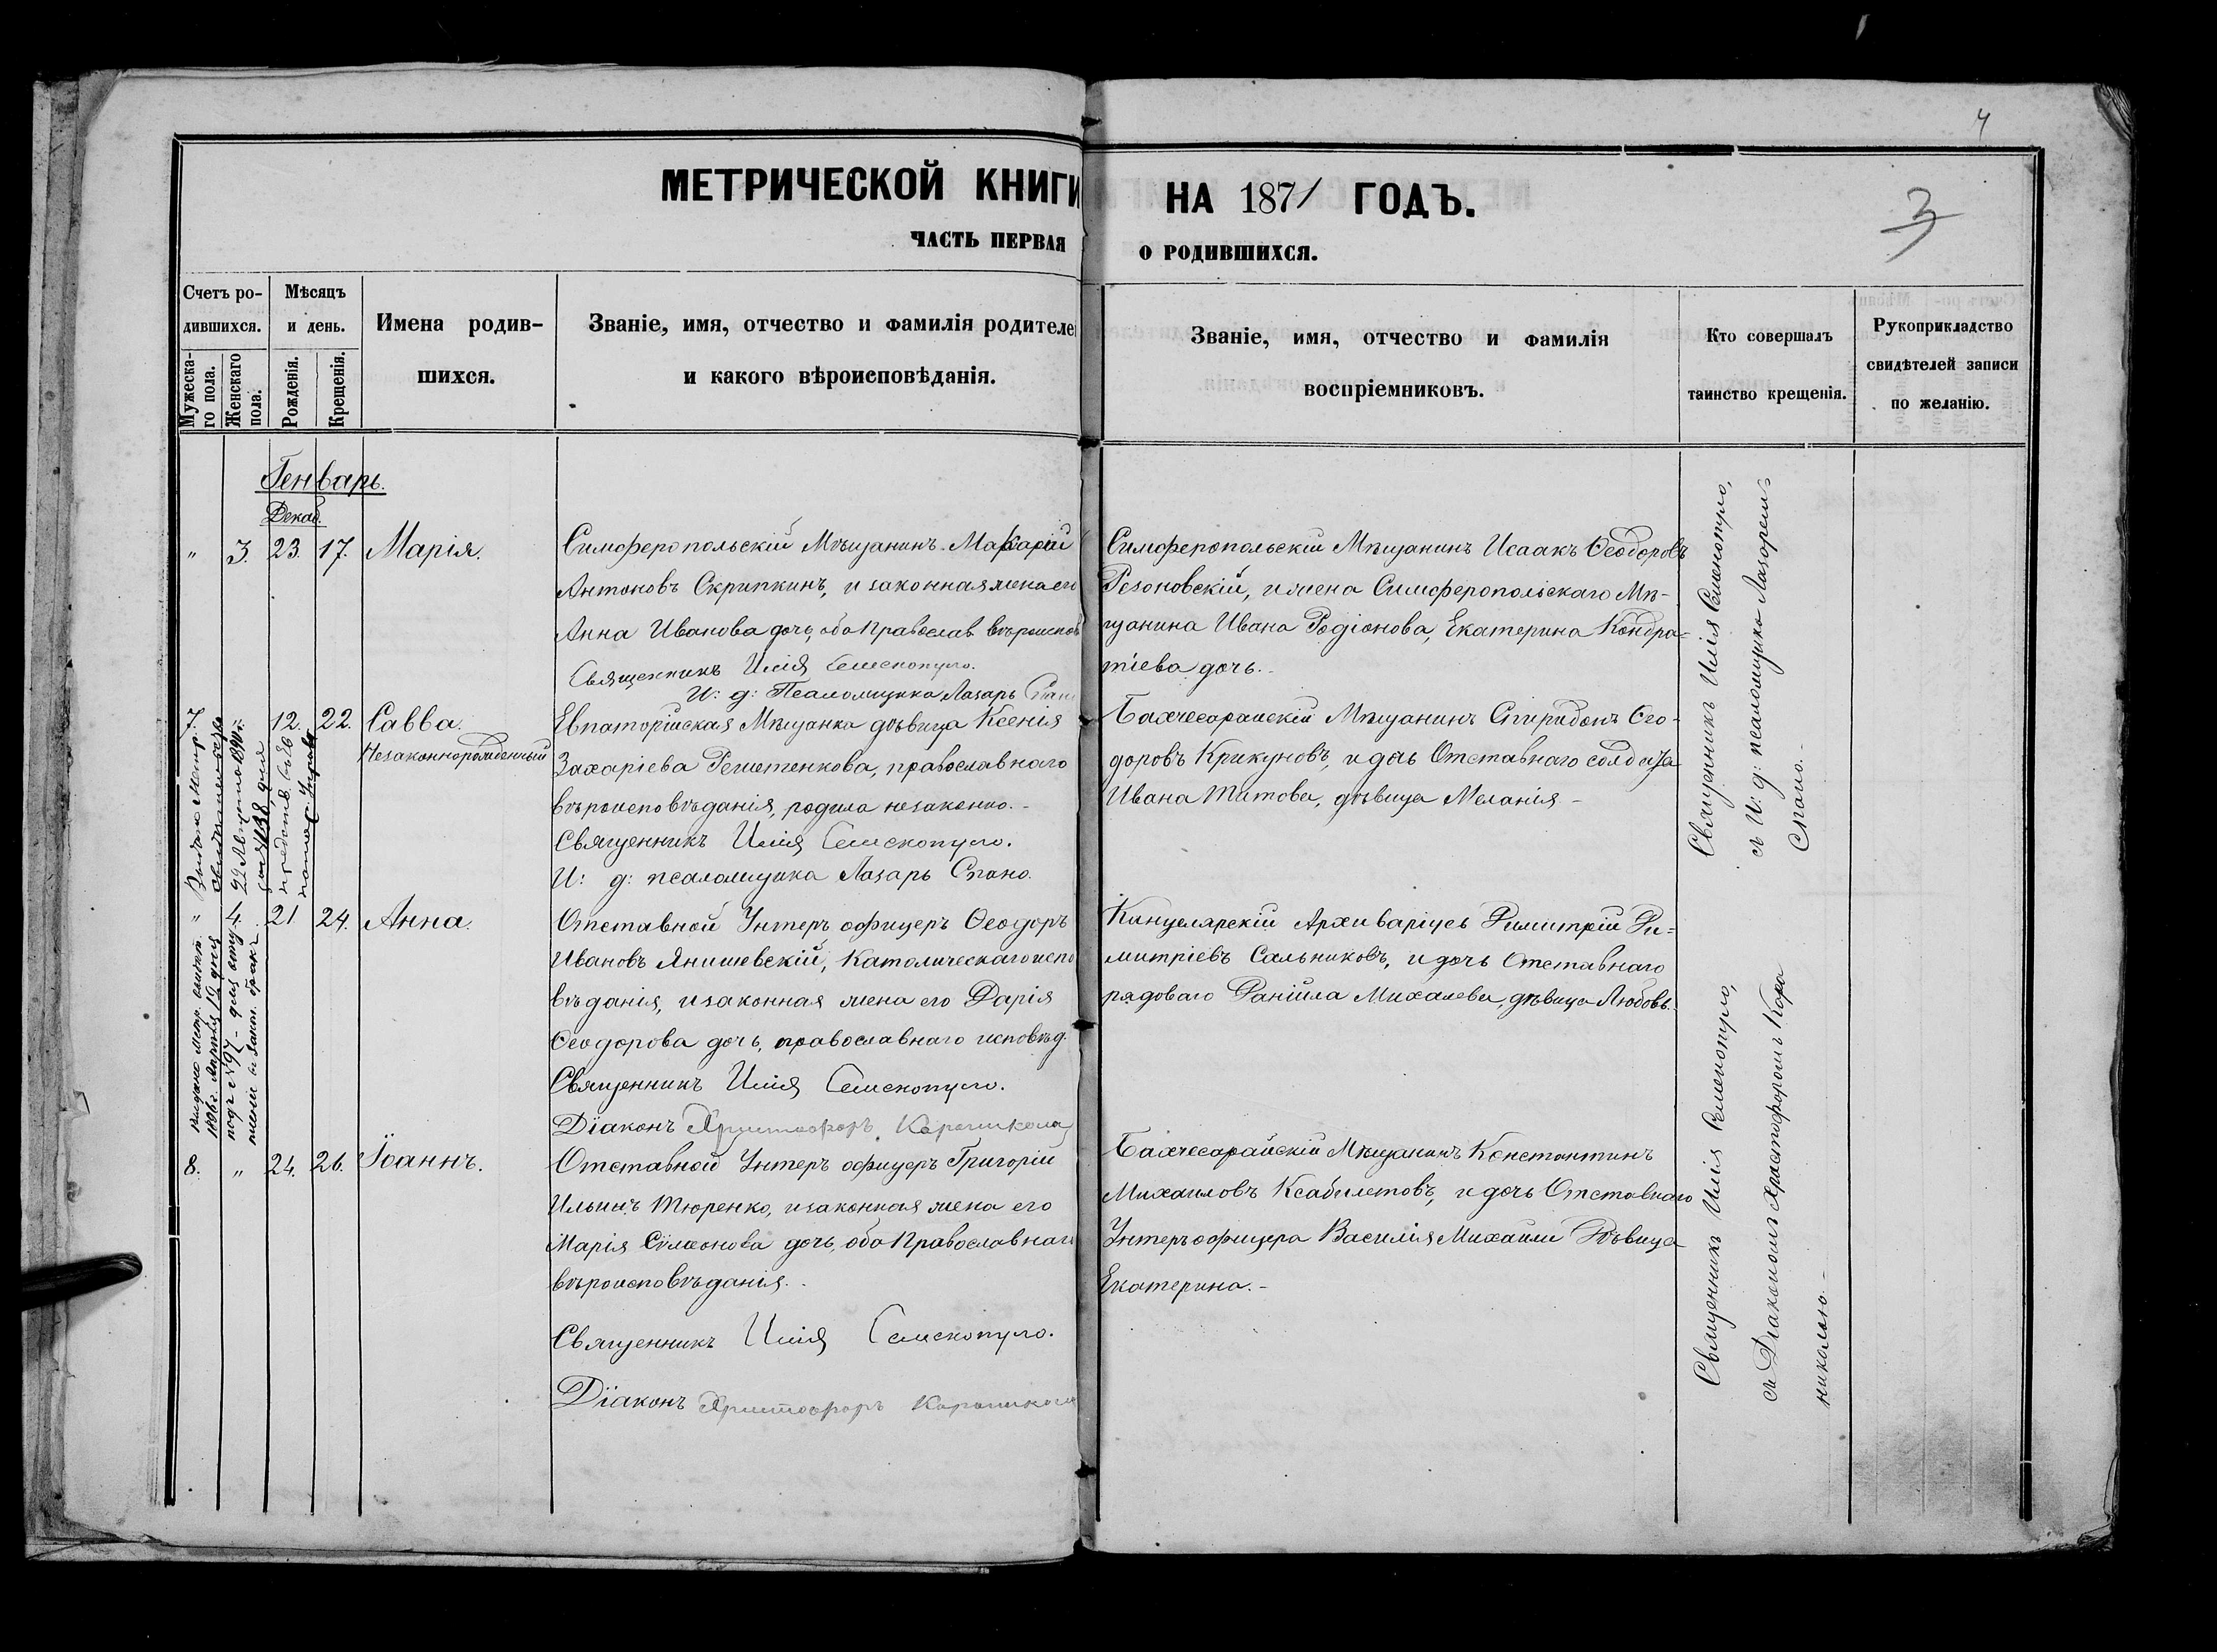 4
3
МЕТРИЧЕСКОЙ КНИГИ НА 1871 ГОДЪ.
ЧАСТЬ ПЕРВАЯ О РОДИВШИХСЯ.
Счетъ ро-
дившихся.
Мужеска-
го пола.
Женскаго
пола.
Мѣсяцъ
и день.
Рожденія.
Крещенія.
Имена родив-
шихся.
Званіе, имя, отчество и фамилія родителе
и какого вѣроисповѣданія.
Званіе, имя, отчество и фамилія
воспріемниковъ.
Кто совершалъ
таинство крещенія.
Рукоприкладство
свидѣтелей записи
по желанію.
Генварь.
Декаб.
" 3. 23. 17. Марія.
Симферопольскій Мѣщанинъ Макарій
Антоновъ Скрипкинъ, и законная жена его
Анна Иванова дочь, оба Православ. вѣроисповѣ
Священникъ Илія Семскопуло.
И: д: Псаломщика Лазарь Спан
Симферопольскій Мѣщанинъ Исаакъ Ѳеодоровъ
Резоновскій, и жена Симферопольскаго Мѣ-
щанина Ивана Родіонова, Екатерина Кондра=
тіева дочь.
7. 12. 22. Савва.
Незаконнорожденный
Евпаторійская Мѣщанка дѣвица Ксенія
Захаріева Решетенкова, православнаго
вѣроисповѣданія, родила незаконно.-
Священникъ Илія Семскопуло.
И: д: псаломщика Лазарь Спано.
Бахчесарайскій Мѣщанинъ Спиридонъ Ѳео-
доровъ Крикуновъ, и дочь Отставнаго солдата
Ивана Титова, дѣвица Меланія -
Священникъ Илія Семскопуло,
съ И: д: псаломщика Лазарем=
Спано.-
" 4. 21 24. Анна.
Отставной Унтеръ офицеръ Ѳеодоръ
Ивановъ Янишевскій, Католическаго испо
вѣданія, и законная жена его Дарія
Ѳеодорова дочь, православнаго исповѣд.
Священникъ Илія Семскопуло.
Діаконъ Христофоръ Караникола
Канцелярскій Архиваріусъ Димитрій Ди=
митріевъ Сальниковъ, и дочь Отставнаго
рядоваго Даніила Михалева, дѣвица Любовь.
8. " 24. 26. Іоаннъ.
Отставной Унтеръ офицеръ Григорій
Ильинъ Тюренко, и законная жена его
Марія Сѵмеонова дочь, оба Православнаго
вѣроисповѣданія.-
Священникъ Илія Семскопуло.
Діаконъ Христофоръ Караникола
Бахчесарайскій Мѣщанинъ Константинъ
Михаиловъ Ксабилетовъ, и дочь Отставнаго
Унтеръ офицера Василія Михаили Дѣвица
Екатерина.-
Священникъ Илія Семскопуло,
съ Діакономъ Христофоромъ Кара
николою.-